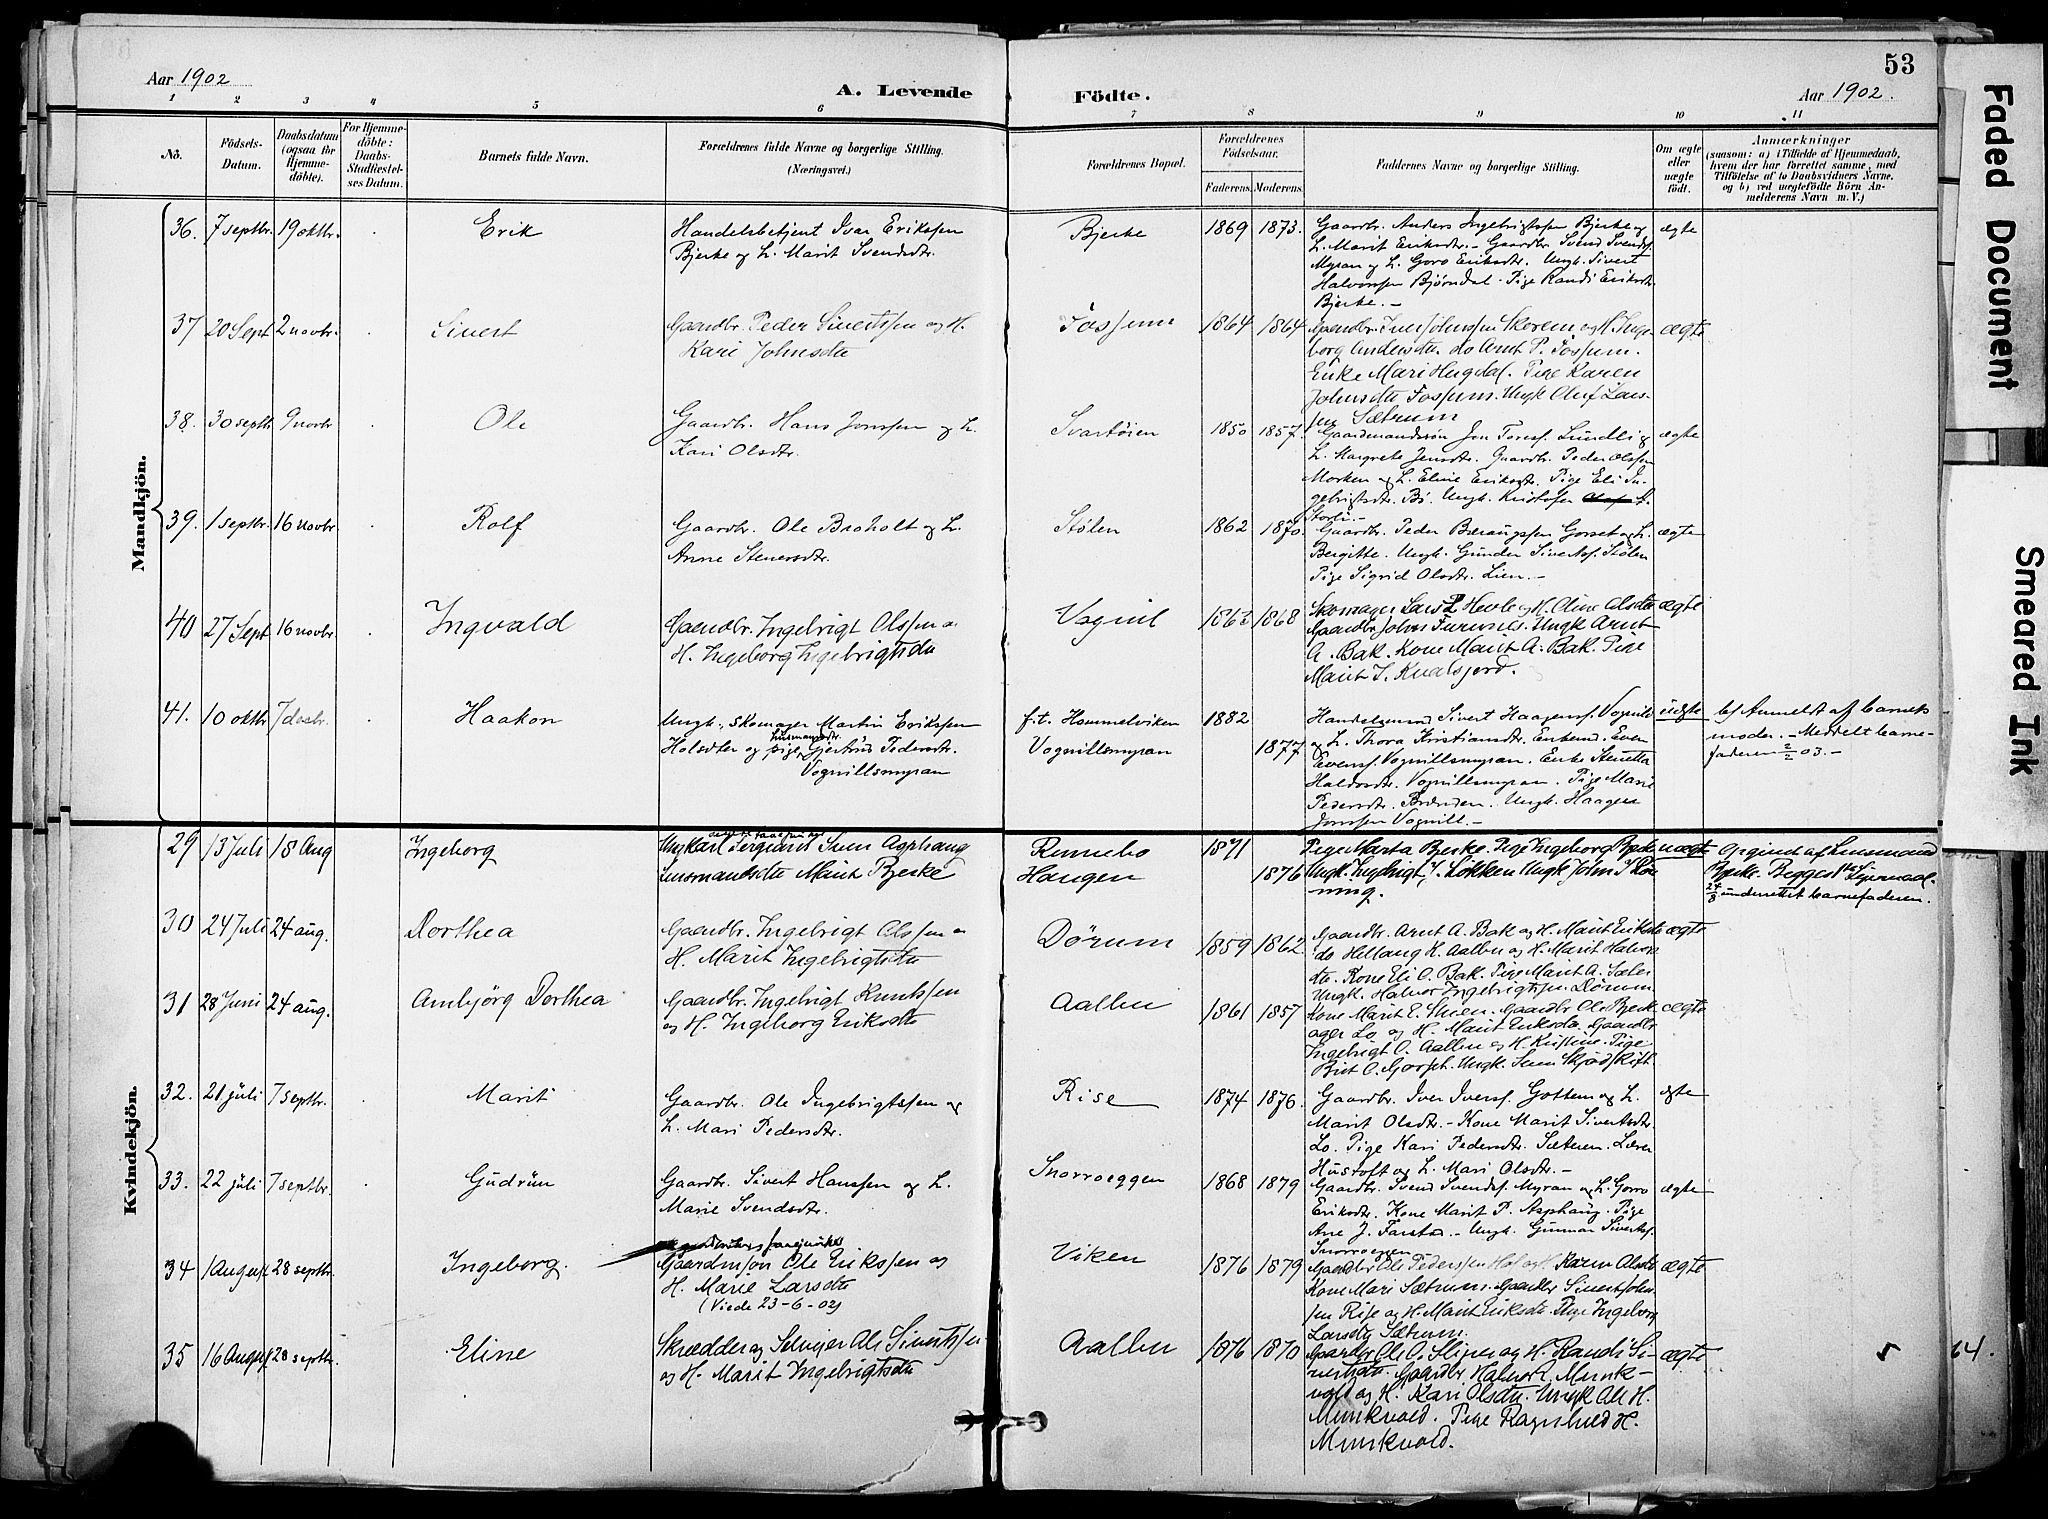 53
Aar 1902
A. Levende
Födte.
Aar 1902.
1 2 3 4 5 6 7 8 9 10 11
No.
Födsels-
Datum.
Daabsdatum
(ogsaa for
Hjemme-
döbte).
For Hjemme-
döbte:
Daabs-
Stadfæstel-
ses Datum.
Barnets fulde Navn.
Forældrenes fulde Navne og borgerlige Stilling.
(Næringsvei.)
Forældrenes Bopæl.
Forældrenes
Födselsaar.
Faderens. Moderens.
Faddernes Navne og borgerlige Stilling.
Om ægte
eller
uægte
födt.
Anmærkninger
(saasom: a) i Tilfælde af Hjemmedaab,
hvem der har forrettet samme, med
Tilföielse af to Daabsvidners Navne.
og b) ved uægtefödte Börn An-
melderens Navn m. V.)
Mandkjön.
36. 7 septbr. 19 oktbr. Erik
Handelsbetjent Ivar Erikssen
Bjerke og H. Marit Svendsdtr.
Bjerke 1869 1873.
Gaardbr. Anders Ingebrigtssen Bjerke og
H. Marit Eriksdtr. - Gaardbr. Svend Svendsf.
Myran og H. Goro Eriksdtr. Ungk. Sivert
Halvorssen Bjørndal. Pige Randi Eriksdtr.
Bjerke. -
ægte
37 20 Sept 2 novbr. Sivert
Gaardbr. Peder Sivertssen og H.
Kari Johnsdtr
Fossum 1864 1864
Gaardbr. Iver Johnssen Skorem og H. Inge
borg Andersdtr. do Arnt P. Fossum.
Enke Mari Hugdal. Pige Karen
Johnsdtr Fossum. Ungk Oluf Lars-
sen Sætrum
ægte
38. 30 septbr 9 novbr Ole
Gaardbr. Hans Jonssen og H.
Kari Olsdtr.
Svartøien 1850 1857.
Gaardmandssøn Jon Toresf. Lundli og
H. Margrete Jensdtr. Gaardbr. Peder Olssen
Morken og H. Eline Eriksdtr. Pige Eli In-
gebrigtsdtr. Bø. Ungk. Kristofer
Storli. -
ægte
39. 1 septbr. 16 novbr Rolf
Gaardbr. Ole Broholt og H.
Anne Stenersdtr.
Stølen 1862 1870.
Gaardbr. Peder Gorset og H.
Bergitte. Ungk. Gunder Sivertsf. Stølen
Pige Sigrid Olsdtr. Lien. -
ægte
40 27 Sept 16 novbr. Ingvald
Gaardbr. Ingebrigt Olssen o
H. Ingeborg Ingebrigtsdtr
Vognil 1863 1868
Skomager Lars L Hevle og H. Oline Olsdtr
Gaardbr John Ungk Arnt
A. Bak. Kone Marit A. Bak. Pige
Marit I.
ægte
41. 10 oktbr 7 desbr. Haakon
Ungk. skomager Martin Erikssen
Holsdtr og pige husmandsdtr. Gjertrud Pedersdtr.
Vognillsmyran
f.t. Hommelviken 1882
Vognillsmyran 1877
Handelsmand Sivert Haagensf. Vognild
og H. Thora Kristiansdtr. Enkemd. Even
Evensf. Vognillsmyran. Enke
Haldosdtr. Vognillsmyran. Pige Marie
Pedersdtr. Brænden. Ungk. Haagen
Jonssen Vognill. -
uægte
b) Anmeldt af barnets
moder. - Meddelt barne-
faderen 2/2 03. -
Kvindekjön.
29 13 Juli 18 Aug Ingeborg
Ungkarl Sergeant Sven Asphaug
Lensmandsdtr Marit Bjerke
Rennebo 1871
Haugen 1876
Pige Marta Bjerke. Pige Ingeborg Bjerke
Ungk. Ingebrigt J. Løkken Ungk John
uægte
Opgivet af Lensmand
Bjerke. Begges 1ste Leiermaal.
24/8 underrettet barnefaderen.
30 24 Juli 24 aug. Dorthea
Gaardbr. Ingebrigt Olssen o
H. Marit Ingebrigtsdtr
Dørum 1859 1862
Gaardbr. Arnt A. Bak og H. Marit Eriksdtr
do Hellang K. Aalbu og H. Marit Halvors
dtr. Kone Eli O. Bak. Pige Marit A. Sæter
Ungk. Halvor Ingebrigtssen Dørum
ægte
31 28 Juni 24 aug. Ambjörg Dorthea
Gaardbr. Ingebrigt Knutssen
og H. Ingeborg Eriksdtr
Aalbu 1861 1857
Kone Marit E. Gaardbr Ole Bjerk
aager Lo og H. Marit Eriksdtr. Gaardbr
Ingebrigt O. Aalbu og H. Kristine. Pige
Brit O. Gorset. Ungk. Sven
ægte
32. 21 juli 7 septbr. Marit
Gaardbr. Ole Ingebrigtssen og
H. Mari Pedersdtr.
Rise 1874 1876.
Gaardbr. Iver Iversf. Gottem og H.
Marit Olsdtr. - Kone Marit Sivertsdtr.
Lo. Pige Kari Pedersdtr. Sæteren. Lærer
Hustoft og H. Mari Olsdtr. -
ægte
33. 22 juli 7 septbr. Gudrun
Gaardbr. Sivert Hanssen og H.
Marie Svendsdtr.
Snorroeggen 1868 1879
Gaardbr. Svend Svendsf. Myran og H. Gorro
Eriksdtr. Kone Marit P. Asphaug. Pige
Ane J. Farstad. - Ungk. Gunnar Sivertsf.
Snorroeggen
ægte
34 1 August 28 septbr. Ingeborg.
Gaardmsøn Ole Erikssen og
H. Marie Larsdtr
(Viede 23-6-02)
Viken 1876 1879
Gaardbr Ole Pederssen Hol og H. Karen Olsdtr
Kone Mari Sætrum. Gaardbr Sivert John-
sen Rise og H. Marit Eriksdtr. Pige Ingeborg
Larsdtr Sætrum.
ægte
35 16 August 28 septbr. Eline
Skrædder og Selveier Ole Sivertssen
og H. Marit Ingebrigtsdtr
Aalbu 1876 1870
Gaardbr Ole O. Sliper og H. Randi Si-
vertsdtr. Gaardbr Halvor Munk-
vold og H. Kari Olsdtr. Ungk Ole H.
Munkvold. Pige Ragnhild H.
Munkvold.
ægte
64.
Faded Document
Smeared Ink